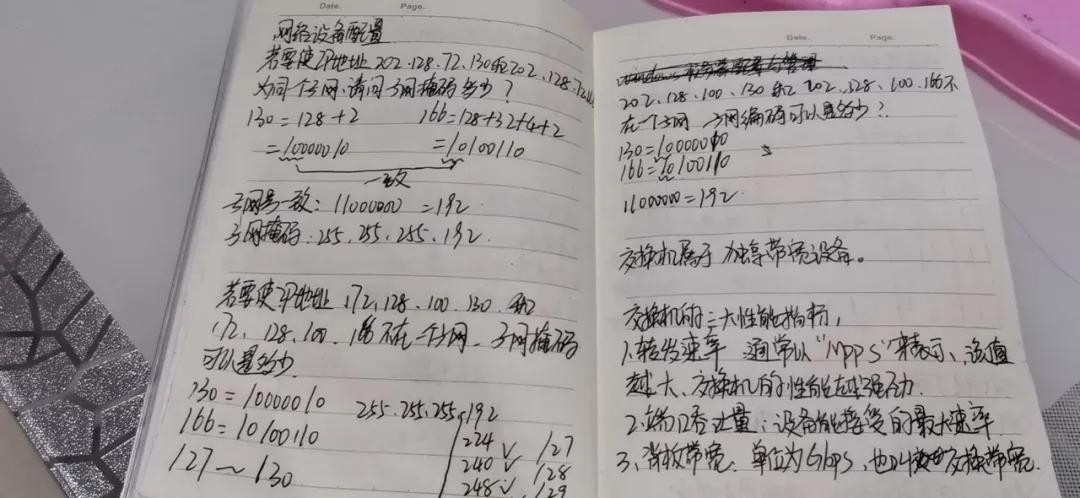 Date. Page.
网络设备配置
若要使IP地址202.128.72.130和202.128.72.
为同个子网,请问子网掩码多少?
130=128+2 166=128+32+4+2
=10000010 =10100110
一致
子网号一致:11000000 =192
子网掩码:255.255.255.192.
若要使IP地址172.128.100.130.和
172.128.100. 不在一个子网.子网掩码
可以是多少
130=10000010 255.255.255.192
166=10100110 224√ /127
127~130 240√ /128
248√ /129
Date. Page.
202.128.100.130和202.128.100.166不
在一个子网 子网编码可以是多少?
130=10000010
166=10100110
11000000=192
交换机属于独享带宽设备。
交换机的三大性能指标,
1.转发速率 通常以"Mpps"来表示、该值
越大、交换机的性能越强劲.
2.端口吞吐量:设备能接受的最大速率
3、背板带宽.单位为Gbps,也叫交换带宽.